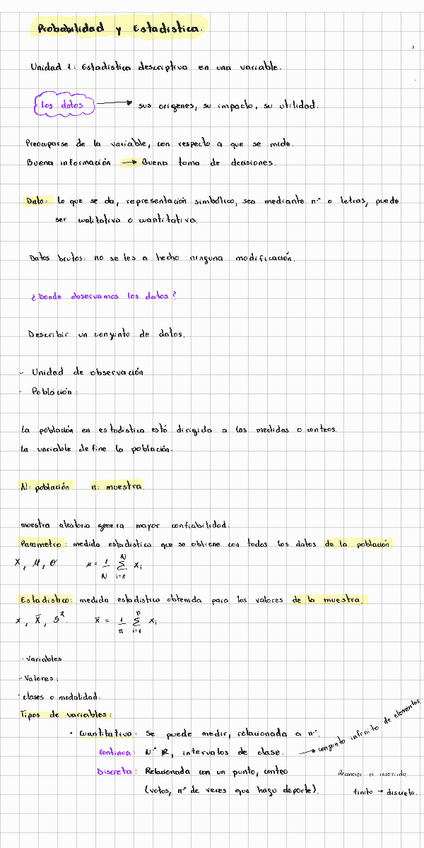 Probabilidad y Estadistica.
Unidad 1: Estadistica descriptiva en una variable.
Los datos → sus origenes, su impacto, su utilidad.
Preocuparse de la variable, con respecto a que se mide.
Buena información → Buena toma de decisiones.
Dato: lo que se da, representación simbólica, sea mediante n° o letras, puede
ser cualitativa o cuantitativa.
Datos brutos: no se les a hecho ninguna modificación.
¿Donde observamos los datos?
Describir un conjunto de datos.
- Unidad de observación
- Población
La población en estadistica está dirigida a las medidas o conteos.
La variable define la población.
N: población n: muestra.
muestra aleatoria genera mayor confiabilidad.
Parametro: medida estadistica que se obtiene con todos los datos de la población
X, μ, σ μ = 1/N N Σ i=1 xi
Estadistico: medida estadistica obtenida para los valores de la muestra:
x, x̄, S². x̄ = 1/n n Σ i=1 xi
- Variables
- Valores:
- clases o modalidad.
Tipos de variables:
• Cuantitativa: Se puede medir, relacionada a n°.
Continua: N° ℝ, intervalos de clase. → conjunto infinito de elementos
Discreta: Relacionada con un punto, conteo
(votos, n° de veces que hago deporte).
finito → discreta.